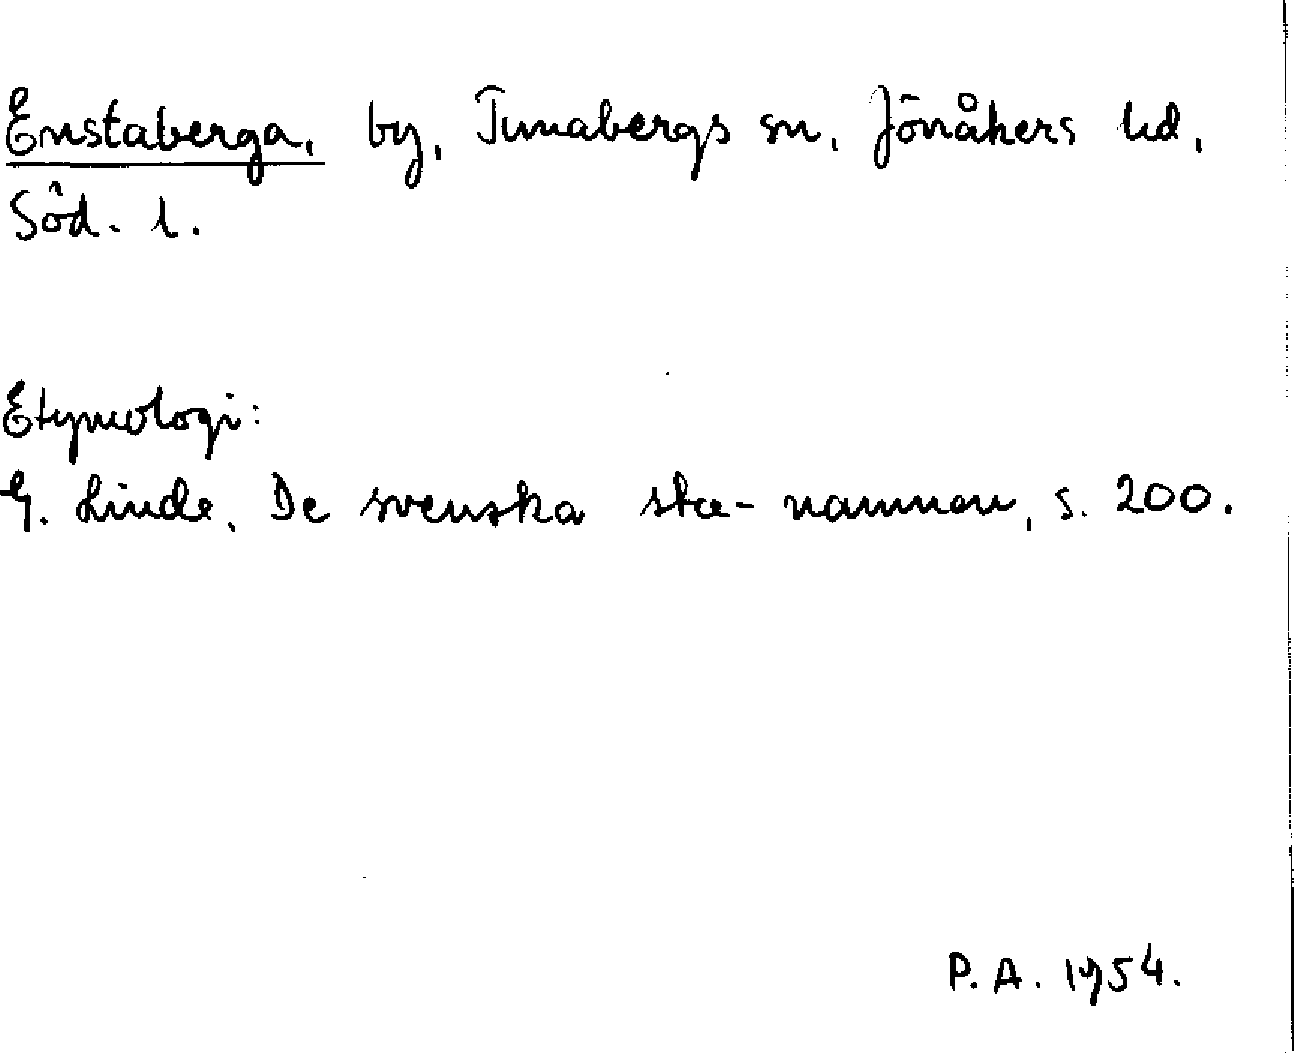 Enstaberga, by, Tunabergs sn, Jönåkers hd,
Söd. l.
Etymologi:
G. Linde, De svenska sta-namnen, s. 200.
P. A. 1954.